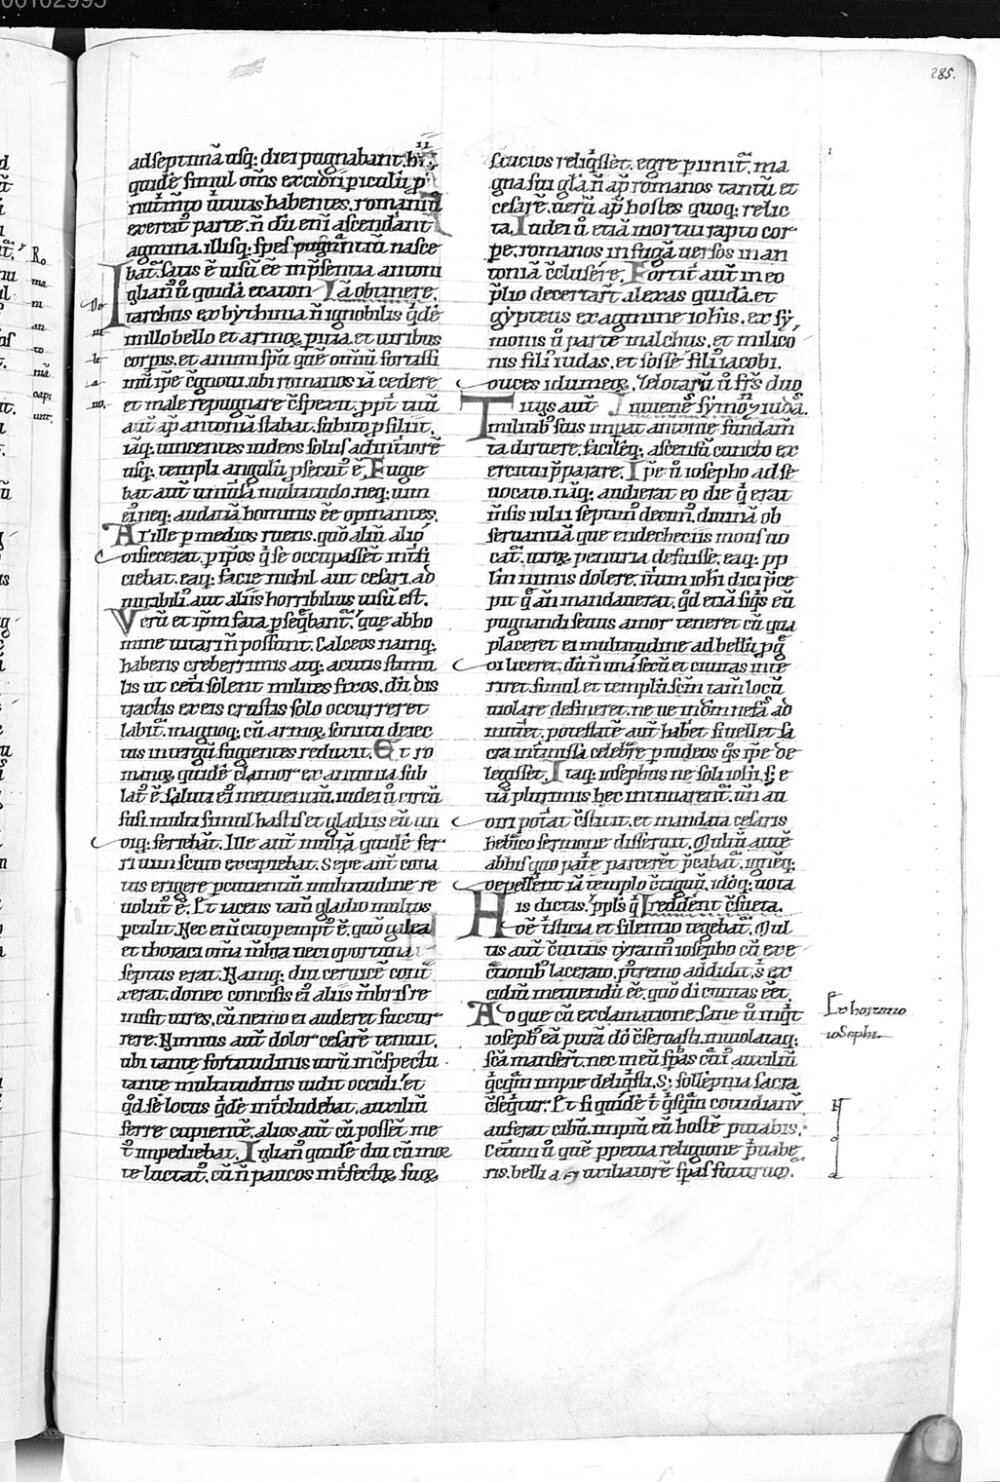 285.
ad septimā usq; diei pugnabant. hi
quidē simul om̄s excidii piculū p
nutrim̄to uirtutis habentes. romani ū
exercit' parte. n̄ dū eni ascendant
agmina. illisq; spes pugnantiū nasce
bat. satis ē uisū eē in p̄sentia antoni
Iulian' ū quidā centurion
iā obtinere.
itarchus ex bythinia n̄ ignobilis
millo bello et armoꝝ pitia. et uiribus
corpis. et animi spū quē omniū fortissi
mū ipe c̄gnoui. ubi romanos iā cedere
et male repugnare c̄spexit. ppt' titū
aut ap antoniā stabat. subito psiliit.
iāq; uincentes iudeos solus ad intiorē
usq; templi angulū psecut' ē. Fugie
bat aut uniūsa multitudo. neq; uim
ei' neq; audatiā hominis eē opinantes.
At ille p medios ruens. quō aliū alio
disiecerat. p ip̄os q̄ se occupassēt int̄fi
ciebat. eaq; facie nichil aut cesari. ad
mirabili'. aut aliis horribilius uisū est.
Verū et ip̄m fata pseq̄bant'. que ab ho
mine uitari n̄ possunt. Calceos namq;
habens creberrimis atq; acutis stimu
lis ut ceti solent milites fixos. dū dis
tractis ex eis crustis solo occurreret
labit'. magnoq; cū armoꝝ sonitu deiec
tus in tergū fugientes reduxit. Et ro
manoꝝ quidē clamor ex antonia sub
lat' ē. saluti ei' metuentiū. iudei ū circū
fusi. multi simul hastis et gladiis eū un
diq; feriebāt. Ille aut multā quidē fer
ri uim scuto excipiebat. Sepe aut cona
tus erigere pcutientiū multitudine re
uolut' ē. Et iacens tam̄ gladio multos
pculit. Nec enī cito pempt' ē. quō galea
et thoraci om̄a m̄bra neci oportuna
septus erat. Namq; diu ceruicē cont̄
xerat. donec concisis ei' aliis m̄bris re
misit uires. cū nemo ei auderet succur
rere. Nimius aut dolor cesarē tenuit.
ubi tante fortitudinis uirū in c̄spectu
tante multitudinis uidit occidi. et
q̄d se locus q̄dē int̄cludebat. auxiliū
ferre cupientē. alios aut cū possēt me
t' impediebat. Iulian' quidē diu cū mor
te luctat'. cū n̄ paucos int̄fectoꝝ suoꝝ
saucios reliq̄ssēt. egre pimit'. ma
gna sui gl'a n̄ ap romanos tantū et
cesarē. uerū ap hostes quoq; relic
ta. Iudei ū etiā mortui rapto cor
pe. romanos in fugā uersos in an
toniā c̄clusere. Fortit' aut in eo
p̄lio decertart. alexas quidā. et
gyptheus ex agmine iohis. ex sy
monis ū parte malchus. et milico
nis fili' iudas. et sosse fili' iacobi.
duces idumeoꝝ. Zelotarū ū frs duo
iuuenes symon 7 iudā.
Titus aut
militib' suis imp̄at antonie fundam̄
ta diruere. facilēq; ascensū cuncto ex
ercitui p̄parare. Ipe ū iosepho ad se
uocato. nāq; audierat eo die q̄ erat
m̄sis iulii septimi decimi. diuinā ob
seruantiā que endechecius mōsi uo
cat'. uiroꝝ penuria defuisse. eaq; pp
lm̄ nimis dolere. itum iohi dici p̄ce
pit q̄ an̄ mandauerat. qd etiā siq̄s eū
pugnandi seuus amor teneret. cū qua
placeret ei multitudine ad bellū pg̊
di liceret. dū n̄ unā secū et ciuitas inte
riret. simul et templū. scm̄ tam̄ locū
uiolare desineret. ne ue in dm̄ nefā ad
mittet. potestatē aut habet si uellet sa
cra int̄missa celebrare p iudeos q̄s ipe de
legisset. Itaq; iosephus ne soli iohi s; e
tiā plurimis hec intimarent'. un̄ au
diri pot'at c̄stitit. et mandata cesaris
hebreo sermone disseruit. Multū autē
ab his quo pat'e parcerēt p̄cabat'. ignēq;
depellent iā templo c̄tiguū. idoq; uota
redderent c̄sueta.
His dictis. ppl's q̄
dē tristicia et silentio tegebat'. Mul
tis aut c̄uitiis tyrann' iosepho cū exe
c̄tionib' lacerato. p̄tremo addidit. s; ex
cidiū metuendū eē. quō di ciuitas eēt.
Ad que cū exclamatione. Sane ū inq̄t
ioseph' eā purā dō c̄seruasti. inuiolataq;
scā manserūt. nec in eū spas cui' auxiliū
q̄cq̄m impie deliq̄sti. S; sollēpnia sacra
c̄seq̄tur. Et siquidē t' q̄sq̄m cotidianū
auferat cibū. impiū eū hostē putabis.
Ceum ū quē ppetua religione p̄uabe
ris. belli auxiliatorē spas futurum.
Exhortatio
iosephi